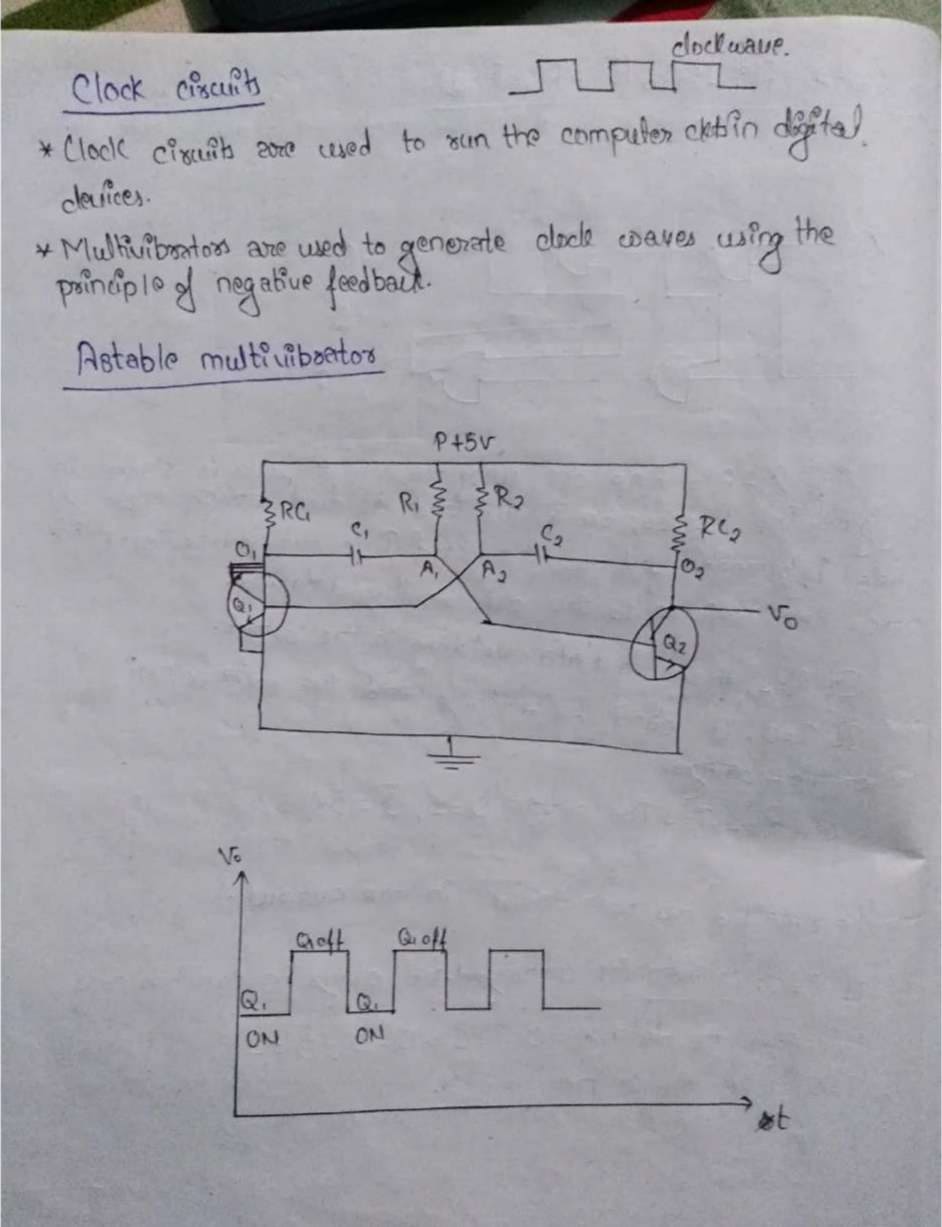 clock wave.
Clock circuits
* Clock circuits are used to run the computer ckts in digital
devices.
* Multivibrators are used to generate clock waves using the
principle of negative feedback.
Astable multivibrator
P+5V
RC1 R1 R2 RC2
C1 C2
O1 A1 A2 O2
Q1 Q2 Vo
Vo
Q1 off Q1 off
Q1 Q1
ON ON
t